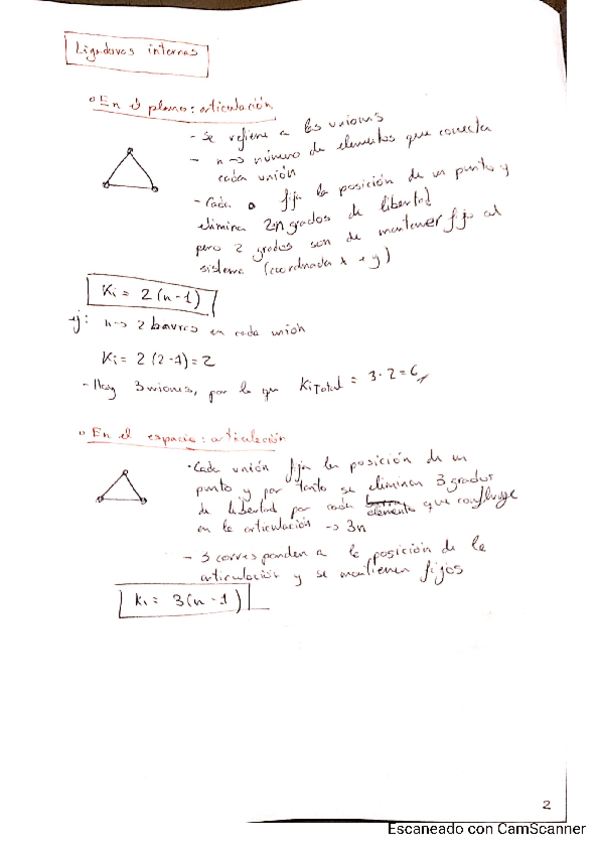 Ligaduras internas
° En el plano: articulación
- Se refiere a las uniones
- n → número de elementos que conecta
cada unión
- Cada o fija la posición de un punto y
elimina 2n grados de libertad
pero 2 grados son de mantener fijo al
sistema (coordenada x e y)
Ki = 2(n-1)
ej: n → 2 barras en cada unión
Ki = 2(2-1) = 2
- Hay 3 uniones, por lo que Ki Total = 3·2 = 6
° En el espacio: articulación
· Cada unión fija la posición de un
punto y por tanto se eliminan 3 grados
de libertad por cada elemento que confluye
en la articulación → 3n
- 3 corresponden a la posición de la
articulación y se mantienen fijos
Ki = 3(n-1)
2
Escaneado con CamScanner